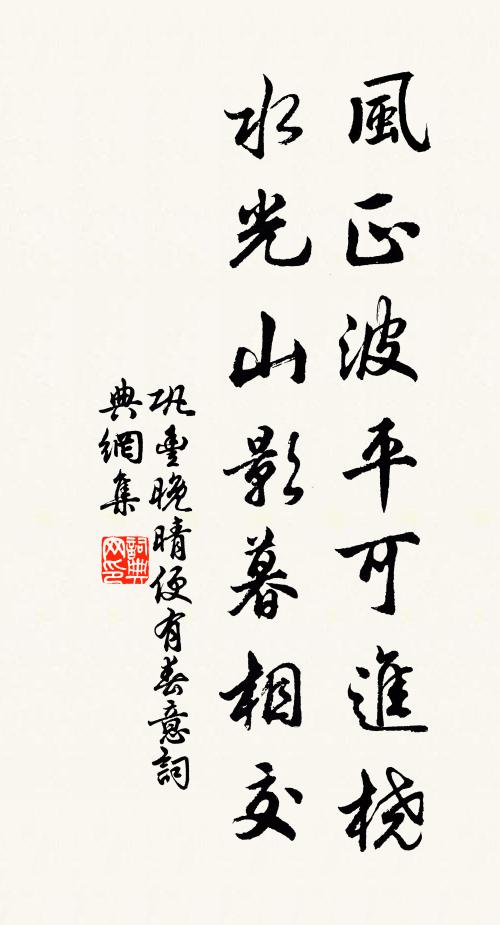 風正波平可進橈
水光山影暮相交
巩豐晚晴便有春意詞
典網集
詞典網印